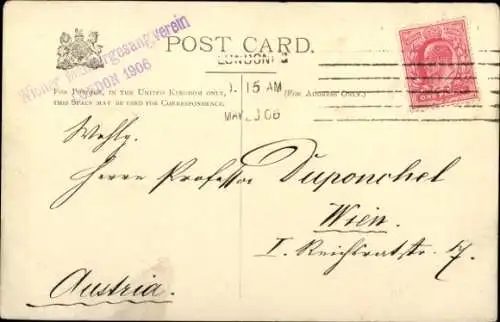 Wiener Männergesangverein
LONDON 1906
POST CARD.
LONDON
1. 15 AM
MAY 06
FOR POSTAGE, IN THE UNITED KINGDOM ONLY,
THIS SPACE MAY BE USED FOR CORRESPONDENCE.
(FOR ADDRESS ONLY.)
Wohlg.
Herrn Professor Duponchel
Wien.
I. Reichsratsstr. 7.
Austria.